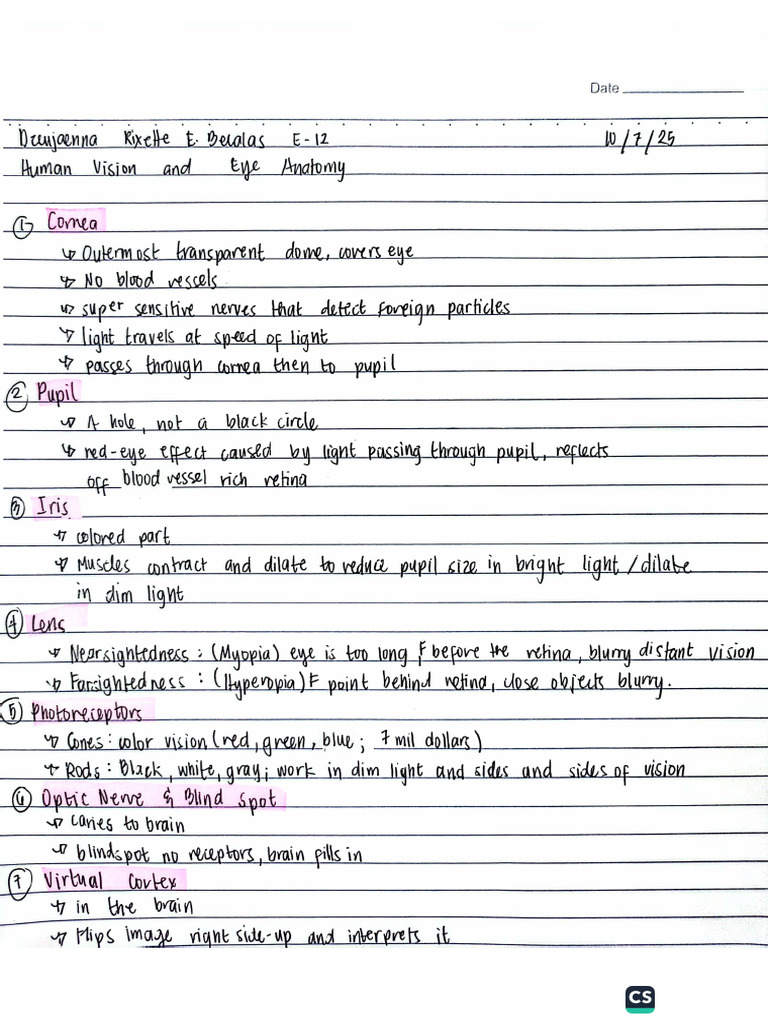 Date
Rixette E. Becalas E-12 10/7/25
Human Vision and Eye Anatomy
① Cornea
↳ Outermost transparent dome, covers eye
↳ No blood vessels
↳ super sensitive nerves that detect foreign particles
↳ light travels at speed of light
↳ passes through cornea then to pupil
② Pupil
↳ A hole, not a black circle
↳ red-eye effect caused by light passing through pupil, reflects
off blood vessel rich retina
③ Iris
↳ colored part
↳ Muscles contract and dilate to reduce pupil size in bright light / dilate
in dim light
④ Lens
↳ Nearsightedness : (Myopia) eye is too long F before the retina, blurry distant vision
↳ Farsightedness : (Hyperopia) F point behind retina, close objects blurry.
⑤ Photoreceptors
↳ Cones : color vision (red, green, blue ; 7 mil dollars)
↳ Rods : Black, white, gray; work in dim light and sides and sides of vision
⑥ Optic Nerve & Blind spot
↳ caries to brain
↳ blindspot no receptors, brain fills in
⑦ Virtual Cortex
↳ in the brain
↳ Flips image right side-up and interprets it
CS